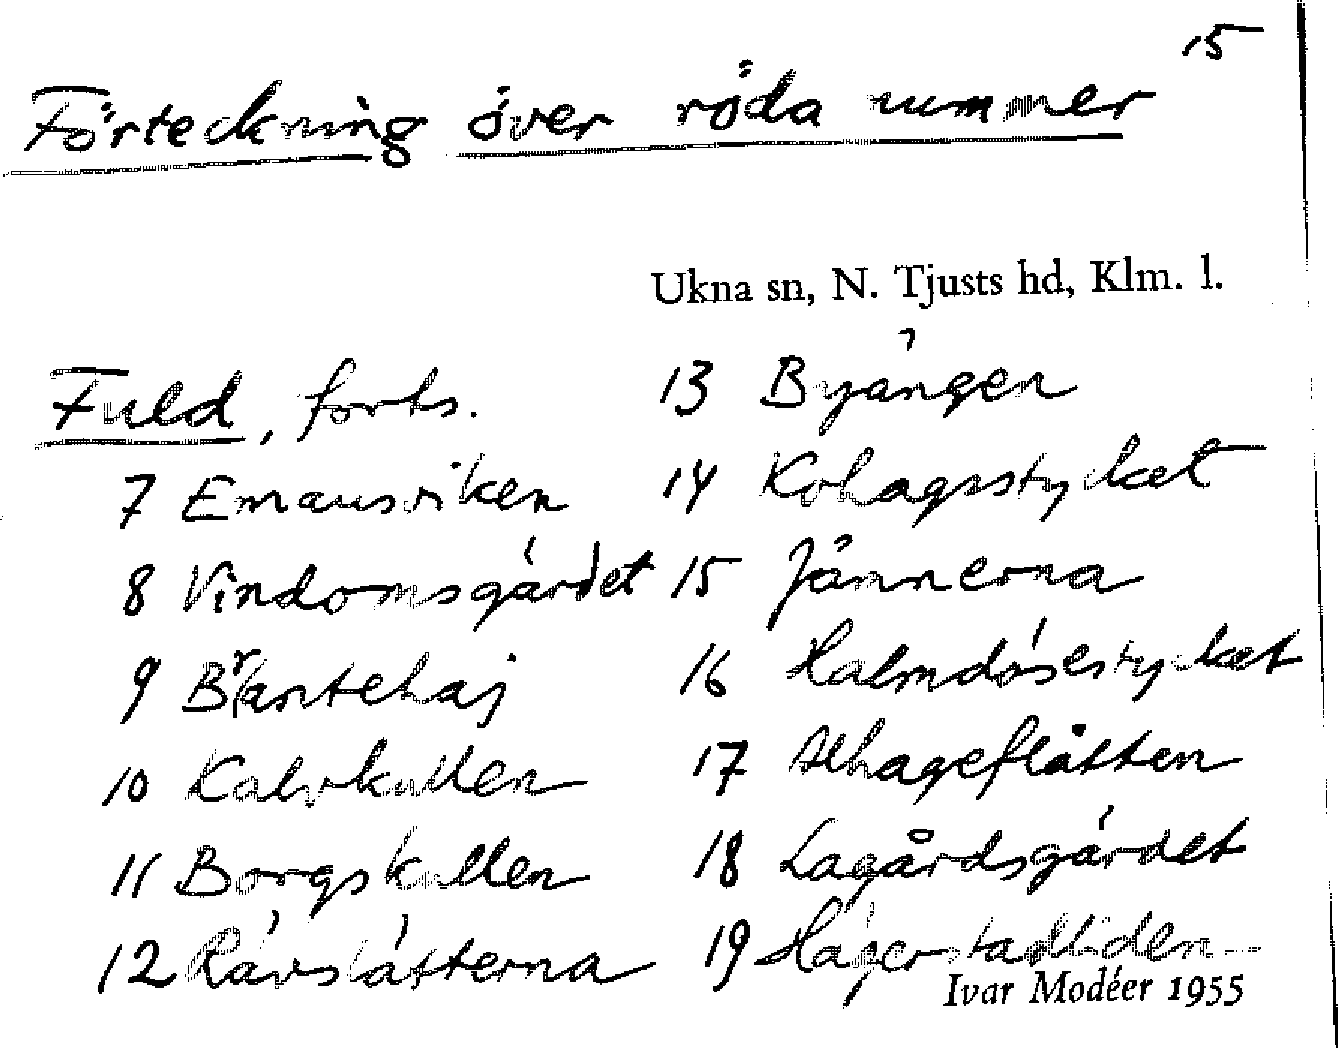 15
Förteckning över röda nummer
Ukna sn, N. Tjusts hd, Klm. l.
Fuld, forts.
7 Emausviken
8 Vindomsgärdet
9 Brantehaj
10 Kalvkullen
11 Borgskullen
12 Rävslätterna
13 Byängen
14 Kohagsstycket
15 Jännerna
16 Halmdösestycket
17 Alhageflätten
18 Lagårdsgärdet
19 Hägerstadliden
Ivar Modéer 1955